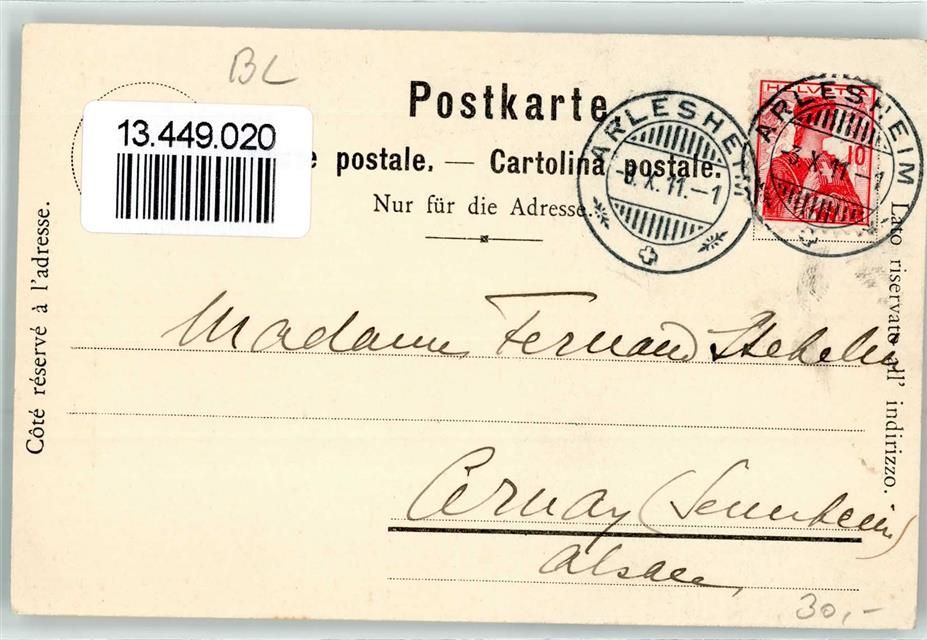 BL
Postkarte
13.449.020
e postale. — Cartolina postale.
Nur für die Adresse.
HELVETIA
10
ARLESHEIM
X.11.–1
ARLESHEIM
X.11.–1
Côté réservé à l'adresse.
Lato riservato all' indirizzo.
Madame Fernand
Cernay (Sennheim)
Alsace
30,-